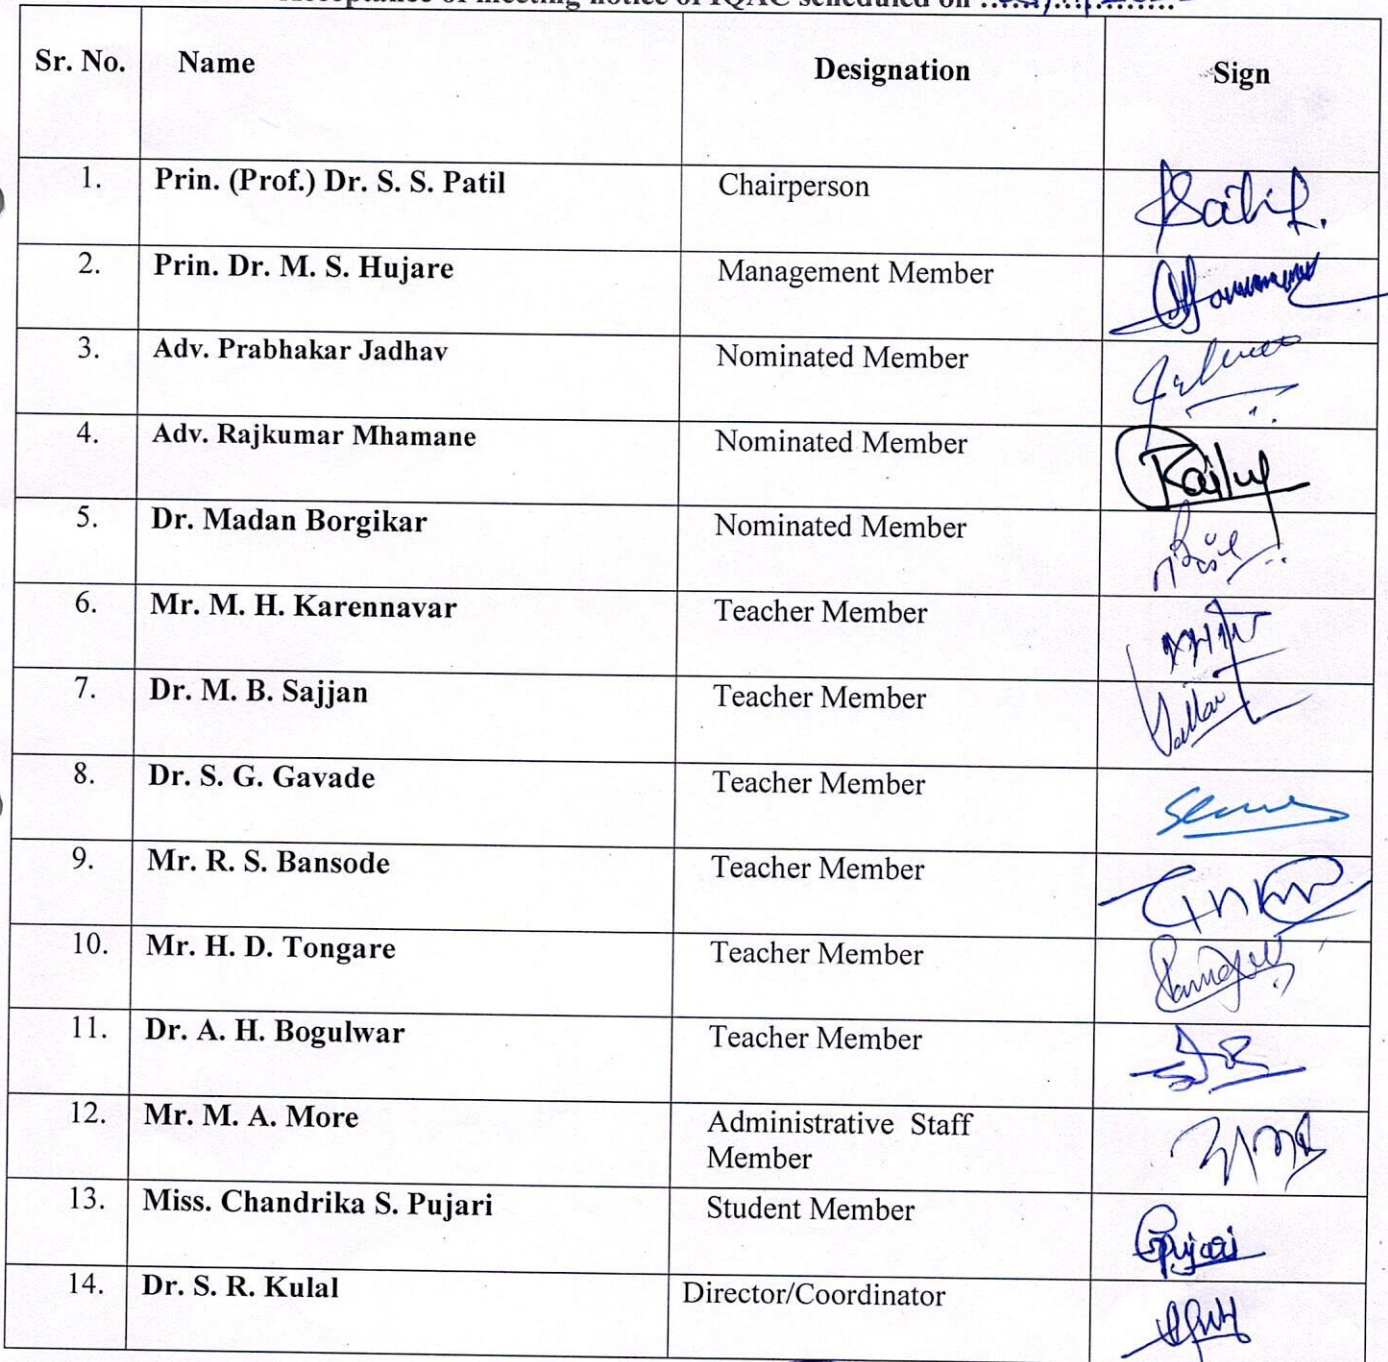 Acceptance of meeting notice of IQAC scheduled on
Sr. No. Name Designation Sign
1. Prin. (Prof.) Dr. S. S. Patil Chairperson
2. Prin. Dr. M. S. Hujare Management Member
3. Adv. Prabhakar Jadhav Nominated Member
4. Adv. Rajkumar Mhamane Nominated Member
5. Dr. Madan Borgikar Nominated Member
6. Mr. M. H. Karennavar Teacher Member
7. Dr. M. B. Sajjan Teacher Member
8. Dr. S. G. Gavade Teacher Member
9. Mr. R. S. Bansode Teacher Member
10. Mr. H. D. Tongare Teacher Member
11. Dr. A. H. Bogulwar Teacher Member
12. Mr. M. A. More Administrative Staff
Member
13. Miss. Chandrika S. Pujari Student Member Pujari
14. Dr. S. R. Kulal Director/Coordinator